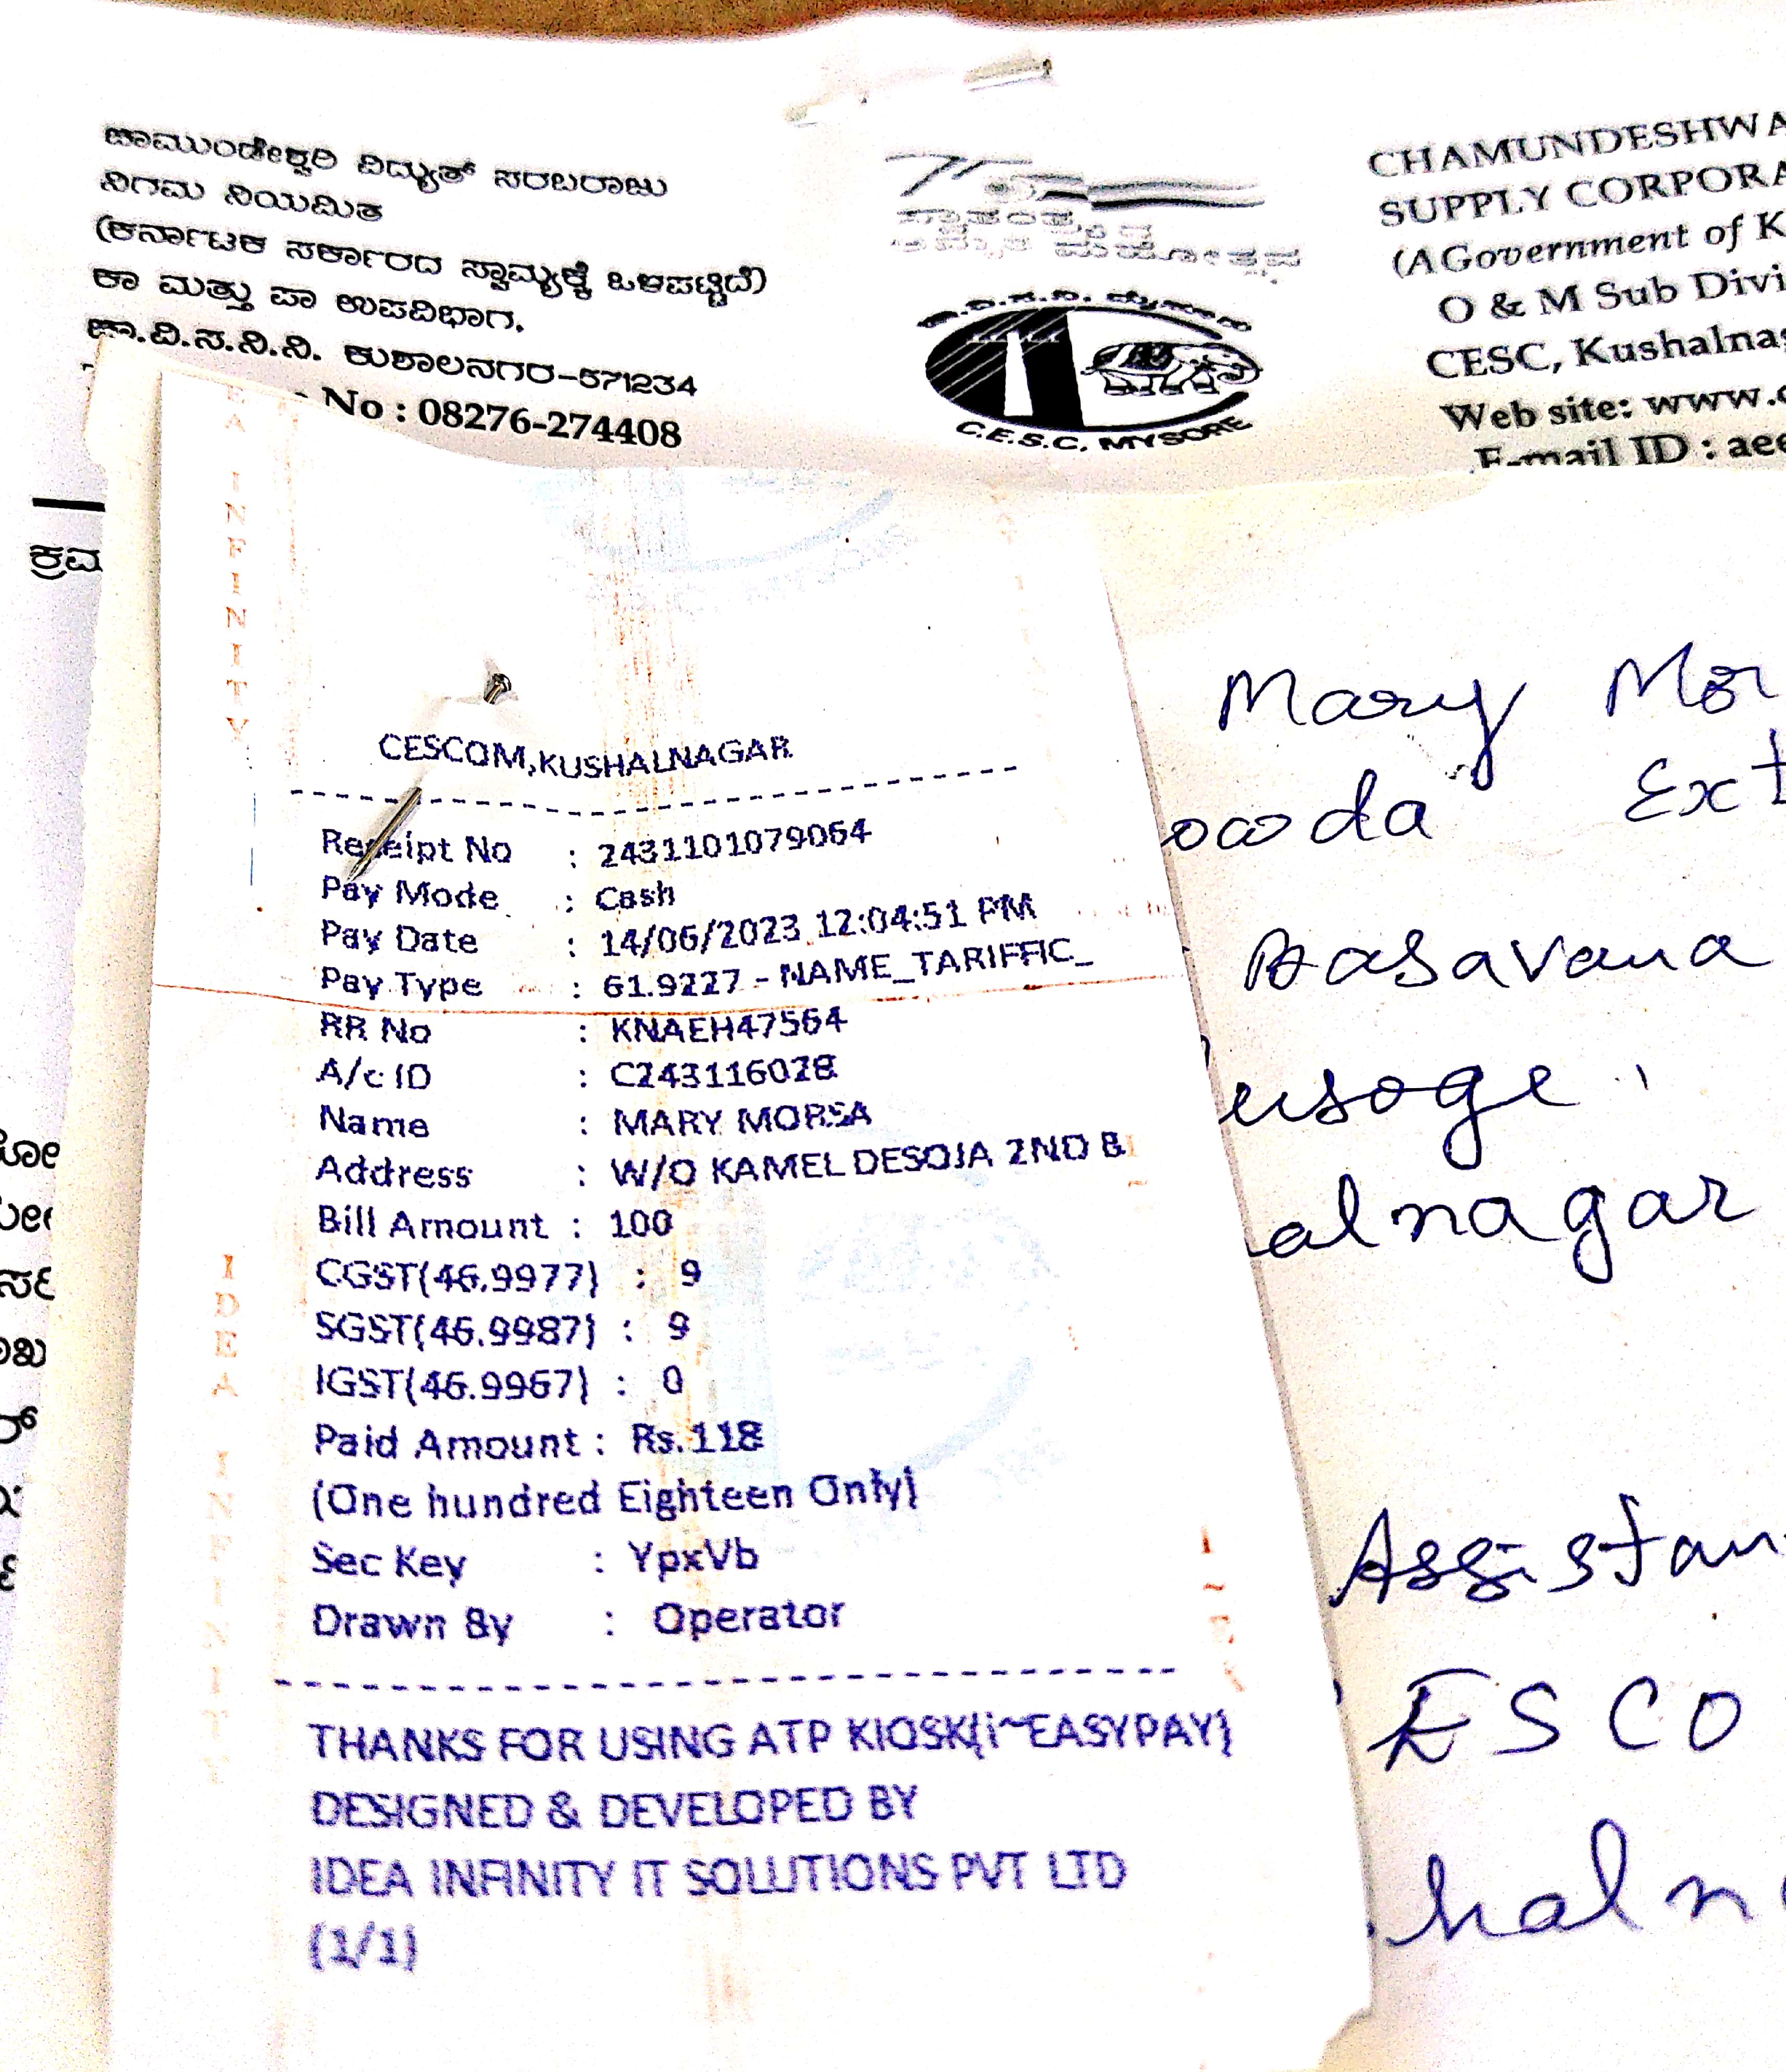 ಚಾಮುಂಡೇಶ್ವರಿ ವಿದ್ಯುತ್ ಸರಬರಾಜು
ನಿಗಮ ನಿಯಮಿತ
(ಕರ್ನಾಟಕ ಸರ್ಕಾರದ ಸ್ವಾಮ್ಯಕ್ಕೆ ಒಳಪಟ್ಟಿದೆ)
ಕಾ ಮತ್ತು ಪಾ ಉಪವಿಭಾಗ.
ಚಾ.ವಿ.ಸ.ನಿ.ನಿ. ಕುಶಾಲನಗರ-571234
No : 08276-274408
75
ಸ್ವಾತಂತ್ರ್ಯದ
ಅಮೃತ ಮಹೋತ್ಸವ
C.E.S.C. MYSORE
CHAMUNDESHWA
SUPPLY CORPORA
(A Government of K
O & M Sub Divi
CESC, Kushalna
Web site: www.
E-mail ID : aee
ಕ್ರಮ
CESCOM,KUSHALNAGAR
Receipt No : 2431101079064
Pay Mode : Cash
Pay Date : 14/06/2023 12:04:51 PM
Pay Type : 61.9227 - NAME_TARIFFIC_
RR No : KNAEH47564
A/c ID : C243116028
Name : MARY MORSA
Address : W/O KAMEL DESOJA 2ND B
Bill Amount : 100
CGST(46.9977) : 9
SGST(46.9987) : 9
IGST(46.9967) : 0
Paid Amount : Rs.118
(One hundred Eighteen Only)
Sec Key : YpxVb
Drawn By : Operator
THANKS FOR USING ATP KIOSK(i~EASYPAY)
DESIGNED & DEVELOPED BY
IDEA INFINITY IT SOLUTIONS PVT LTD
(1/1)
IDEA INFINITY
Mary Mor
owda Ext
Basavana
usoge
alnagar
Assistan
ESCO
haln